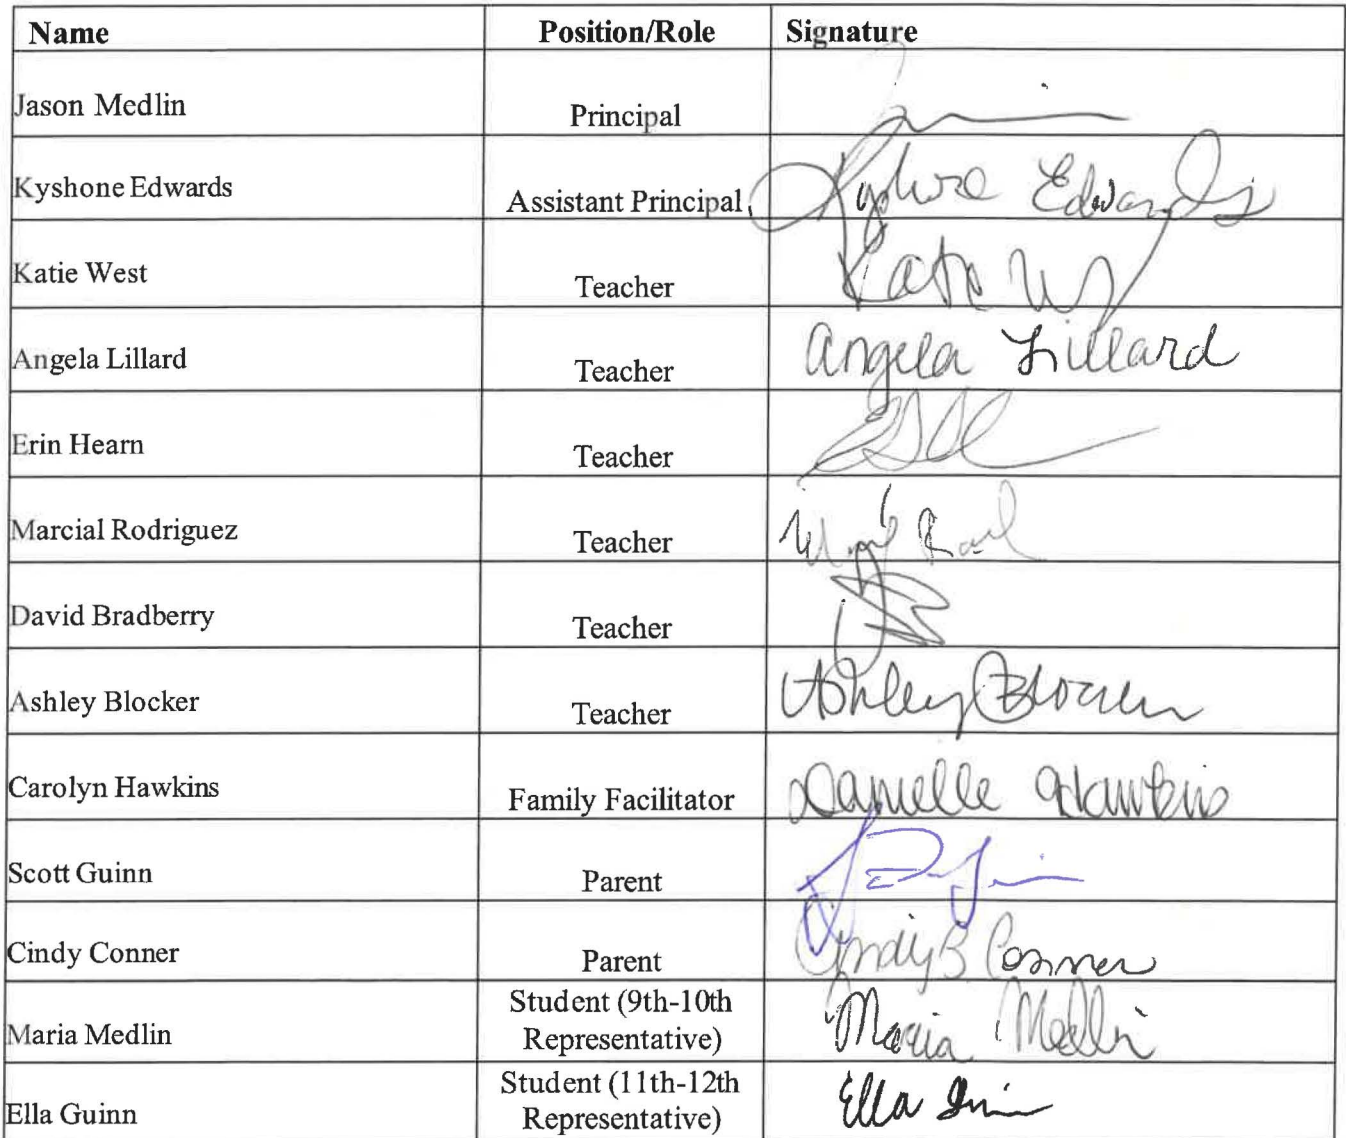 Name Position/Role Signature
Jason Medlin Principal
Kyshone Edwards Assistant Principal Kyshone Edwards
Katie West Teacher Katie W
Angela Lillard Teacher Angela Lillard
Erin Hearn Teacher
Marcial Rodriguez Teacher
David Bradberry Teacher
Ashley Blocker Teacher Ashley Blocker
Carolyn Hawkins Family Facilitator Danielle Hawkins
Scott Guinn Parent
Cindy Conner Parent Cindy B Conner
Student (9th-10th
Maria Medlin Representative) Maria Medlin
Student (11th-12th
Ella Guinn Representative) Ella Guinn